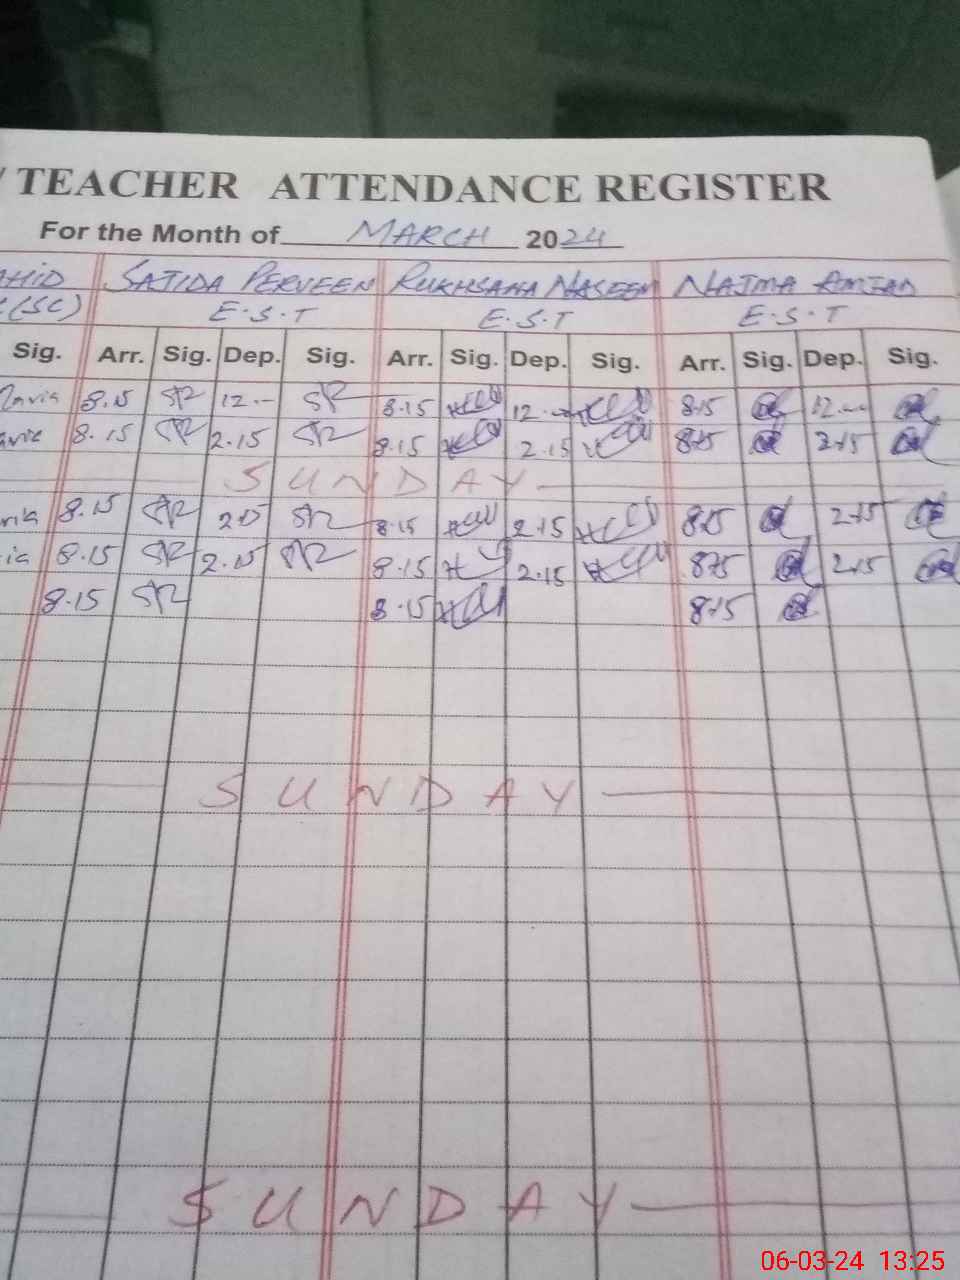 TEACHER ATTENDANCE REGISTER
For the Month of MARCH 2024
AHID SAJIDA PERVEEN RUKHSANA NASEEM NAJMA AMJAD
(SC) E.S.T E.S.T E.S.T
Sig. Arr. Sig. Dep. Sig. Arr. Sig. Dep. Sig. Arr. Sig. Dep. Sig.
8.15 SR 12.- SR 8.15 12.- 8.15 12.-
8.15 SR 2.15 SR 8.15 2.15 8.15 2.15
SUNDAY
8.15 SR 2.15 SR 8.15 2.15 8.15 2.15
8.15 SR 2.15 SR 8.15 2.15 8.15 2.15
8.15 SR 8.15 8.15
SUNDAY
SUNDAY
06-03-24 13:25